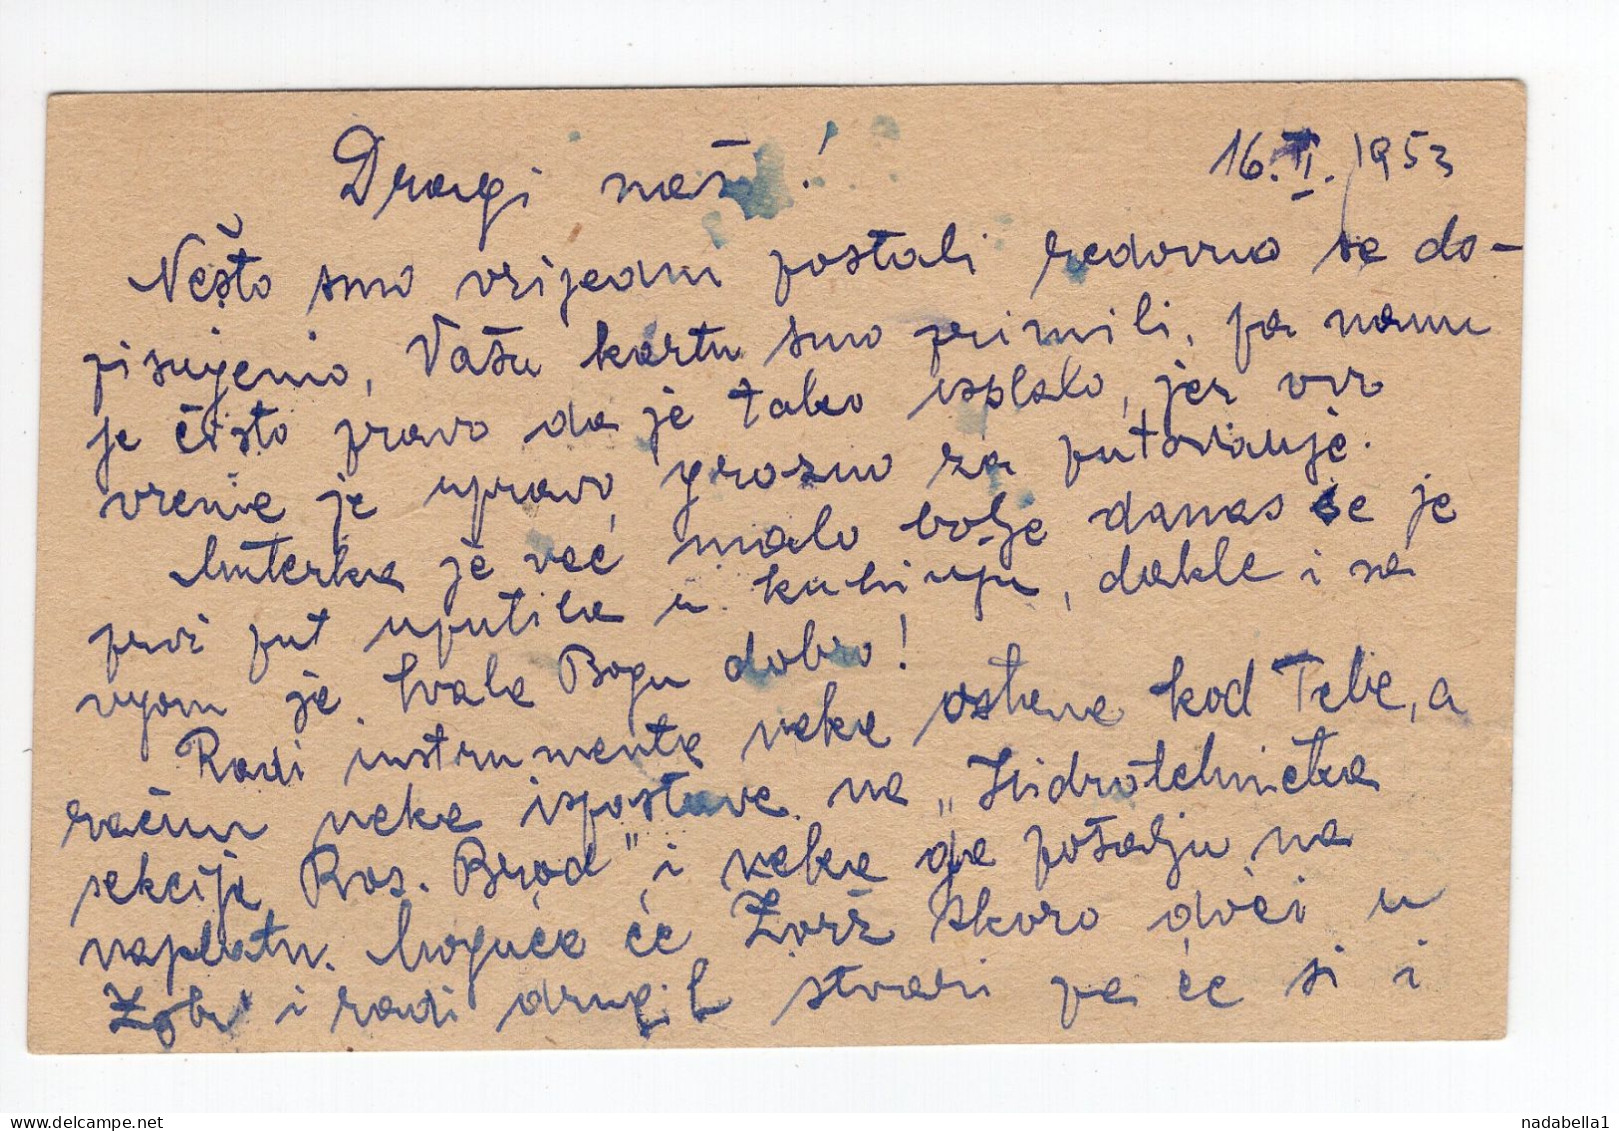 Dragi naši!
16. II. 1953
Nešto smo vrijedni postali redovno se do-
pisujemo, Vašu kartu smo primili, pa nam
je čisto pravo da je tako ispalo, jer ovo
vreme je upravo grozno za putovanje.
Muterka je već malo bolje danas se je
prvi put uputila u kuhinju, dakle i sa
njom je hvala Bogu dobro!
Radi instrumenta neka ostane kod Tebe, a
račun neka ispostave na „Hidrotehnička
sekcija Bos. Brod" i neka ga pošalju na
naplatu. Moguće će Žorž skoro doći u
Zgb i radi drugih stvari pa će si i
nadabella1